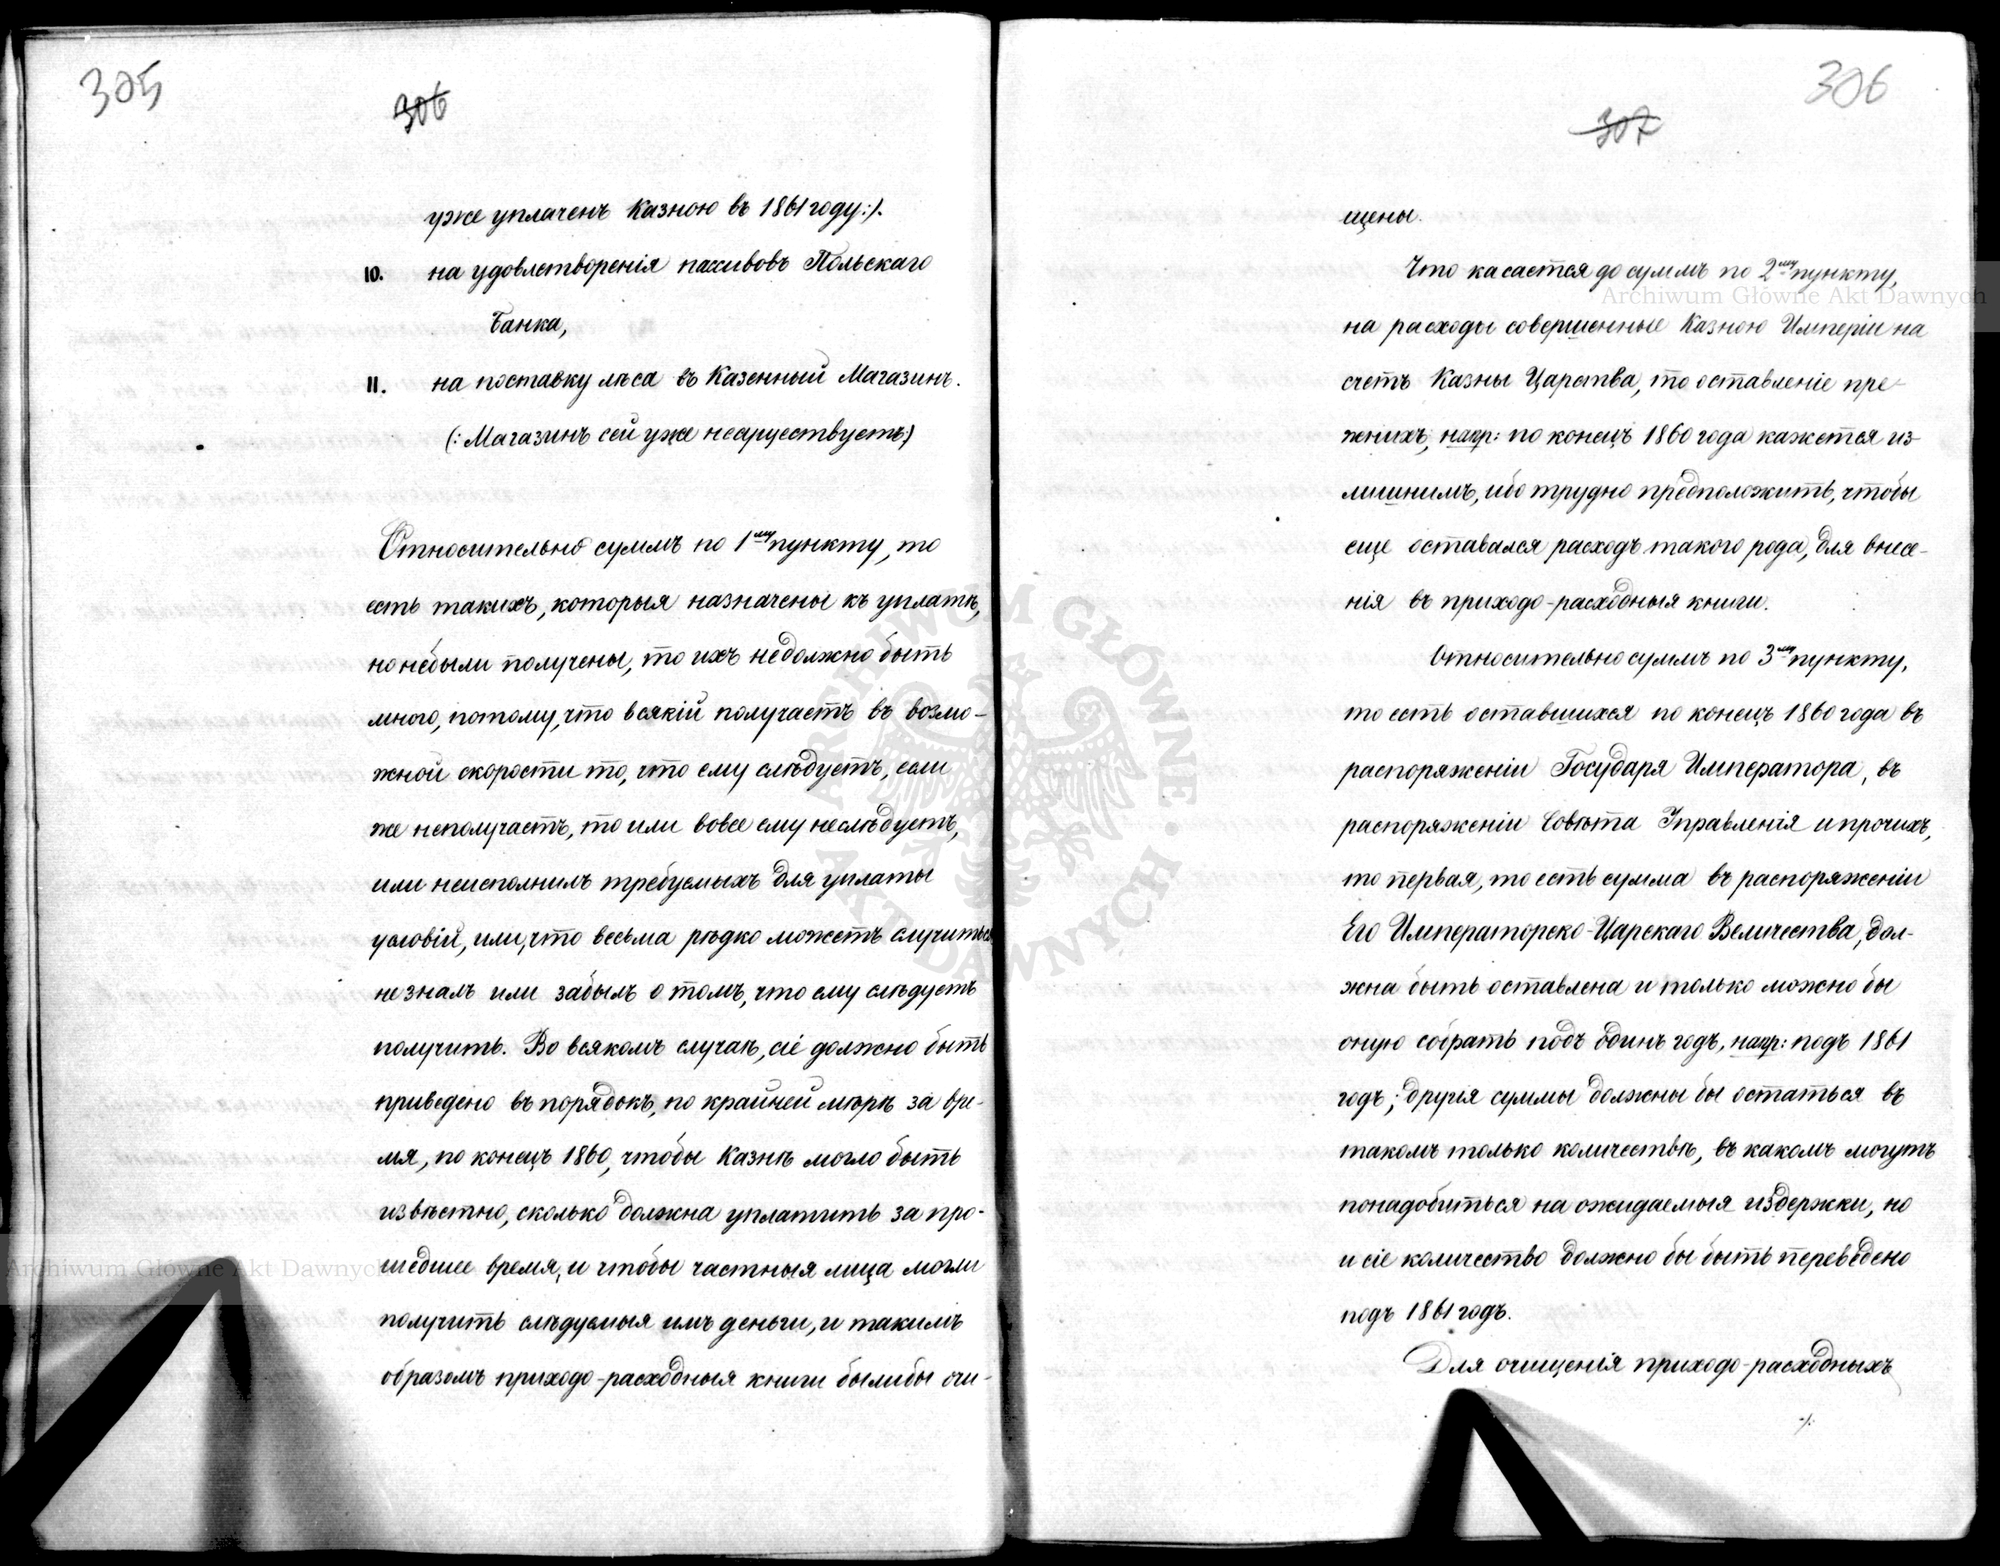 305
306
уже уплаченъ Казною въ 1861 году:).
10. на удовлетворенія пассивовъ Польскаго
Банка,
11. на поставку лѣса въ Казенный Магазинъ.
(: Магазинъ сей уже несуществуетъ:)
Относительно суммъ по 1му пункту, то
есть такихъ, которыя назначены къ уплатѣ,
но небыли получены, то ихъ недолжно быть
много, потому, что всякій получаетъ въ возмо-
жной скорости то, что ему слѣдуетъ, если
же неполучаетъ, то или вовсе ему неслѣдуетъ,
или неисполнилъ требуемыхъ для уплаты
условій, или, что весьма рѣдко можетъ случиться
незналъ или забылъ о томъ, что ему слѣдуетъ
получить. Во всякомъ случаѣ, сіе должно быть
приведено въ порядокъ, по крайней мѣрѣ за вре-
мя, по конецъ 1860, чтобы Казнѣ могло быть
извѣстно, сколько должна уплатить за про-
шедшее время, и чтобы частныя лица могли
получить слѣдуемыя имъ деньги, и такимъ
образомъ приходо-расходныя книги былибы очи-
306
307
щены.
Что касается до суммъ по 2му пункту,
на расходы совершенные Казною Имперіи на
счетъ Казны Царства, то оставленіе пре-
жнихъ, напр: по конецъ 1860 года кажется из-
лишнимъ, ибо трудно предположить, чтобы
еще оставался расходъ такого рода, для внесе-
нія въ приходо-расходныя книги.
Относительно суммъ по 3му пункту,
то есть оставшихся по конецъ 1860 года въ
распоряженіи Государя Императора, въ
распоряженіи Совѣта Управленія и прочихъ,
то первая, то есть сумма въ распоряженіи
Его Императорско-Царскаго Величества, дол-
жна быть оставлена и только можно бы
оную собрать подъ одинъ годъ, напр: подъ 1861
годъ; другія суммы должны бы остаться въ
такомъ только количествѣ, въ какомъ могутъ
понадобиться на ожидаемыя издержки, но
и сіе количество должно бы быть переведено
подъ 1861 годъ.
Для очищенія приходо-расходныхъ
./.
Archiwum Główne Akt Dawnych
Archiwum Główne Akt Dawnych
ARCHIWUM GŁÓWNE AKT DAWNYCH